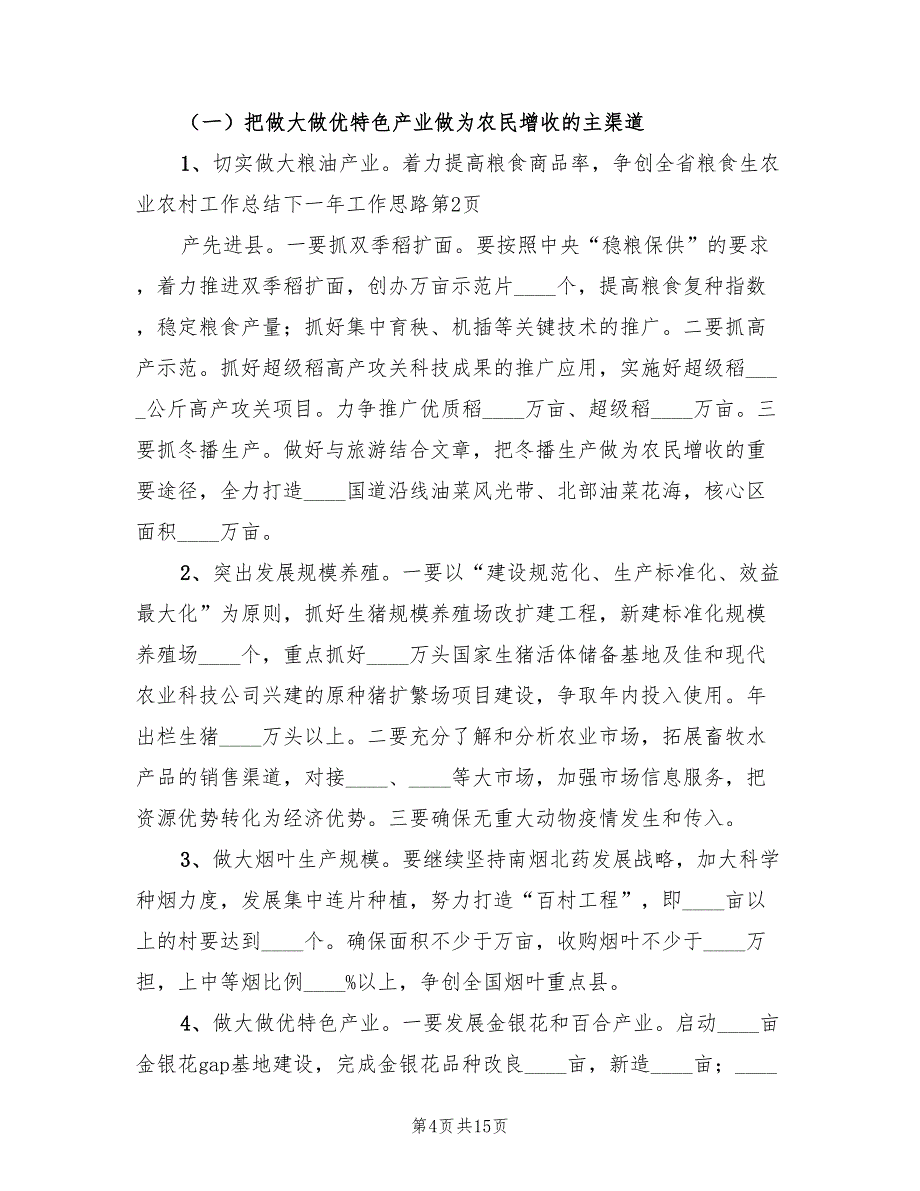 （一）把做大做优特色产业做为农民增收的主渠道
1、切实做大粮油产业。着力提高粮食商品率，争创全省粮食生农
业农村工作总结下一年工作思路第2页
产先进县。一要抓双季稻扩面。要按照中央“稳粮保供”的要求
，着力推进双季稻扩面，创办万亩示范片____个，提高粮食复种指数
，稳定粮食产量；抓好集中育秧、机插等关键技术的推广。二要抓高
产示范。抓好超级稻高产攻关科技成果的推广应用，实施好超级稻___
_公斤高产攻关项目。力争推广优质稻____万亩、超级稻____万亩。三
要抓冬播生产。做好与旅游结合文章，把冬播生产做为农民增收的重
要途径，全力打造____国道沿线油菜风光带、北部油菜花海，核心区
面积____万亩。
2、突出发展规模养殖。一要以“建设规范化、生产标准化、效益
最大化”为原则，抓好生猪规模养殖场改扩建工程，新建标准化规模
养殖场____个，重点抓好____万头国家生猪活体储备基地及佳和现代
农业科技公司兴建的原种猪扩繁场项目建设，争取年内投入使用。年
出栏生猪____万头以上。二要充分了解和分析农业市场，拓展畜牧水
产品的销售渠道，对接____、____等大市场，加强市场信息服务，把
资源优势转化为经济优势。三要确保无重大动物疫情发生和传入。
3、做大烟叶生产规模。要继续坚持南烟北药发展战略，加大科学
种烟力度，发展集中连片种植，努力打造“百村工程”，即____亩以
上的村要达到____个。确保面积不少于万亩，收购烟叶不少于____万
担，上中等烟比例____%以上，争创全国烟叶重点县。
4、做大做优特色产业。一要发展金银花和百合产业。启动____亩
金银花gap基地建设，完成金银花品种改良____亩，新造____亩；____
第4页共15页